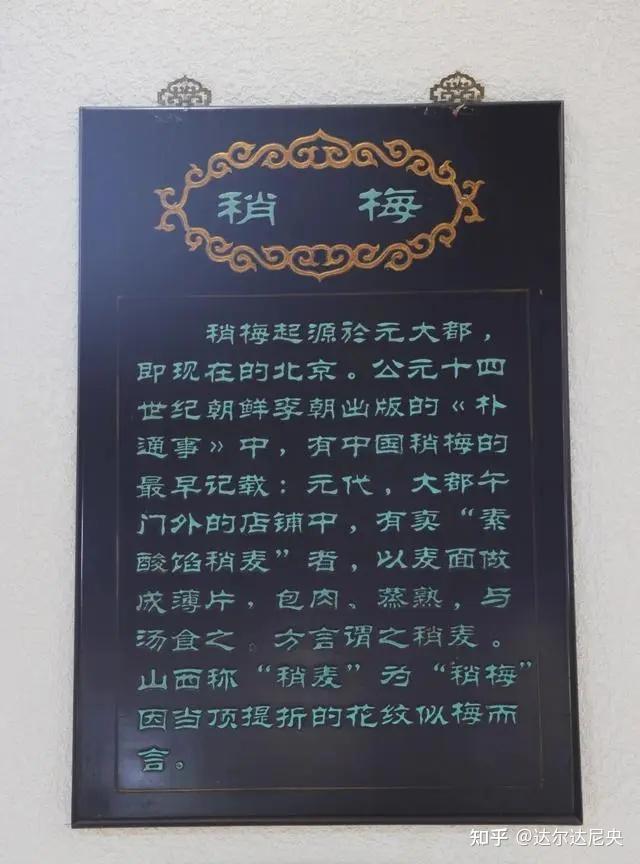 稍 梅
稍梅起源於元大都，
即现在的北京。公元十四
世纪朝鲜李朝出版的《朴
通事》中，有中国稍梅的
最早记载：元代，大都午
门外的店铺中，有卖“素
酸馅稍麦”者，以麦面做
成薄片，包肉、蒸熟，与
汤食之。方言谓之稍麦。
山西称“稍麦”为“稍梅”
因当顶提折的花纹似梅而
言。
知乎 @达尔达尼央